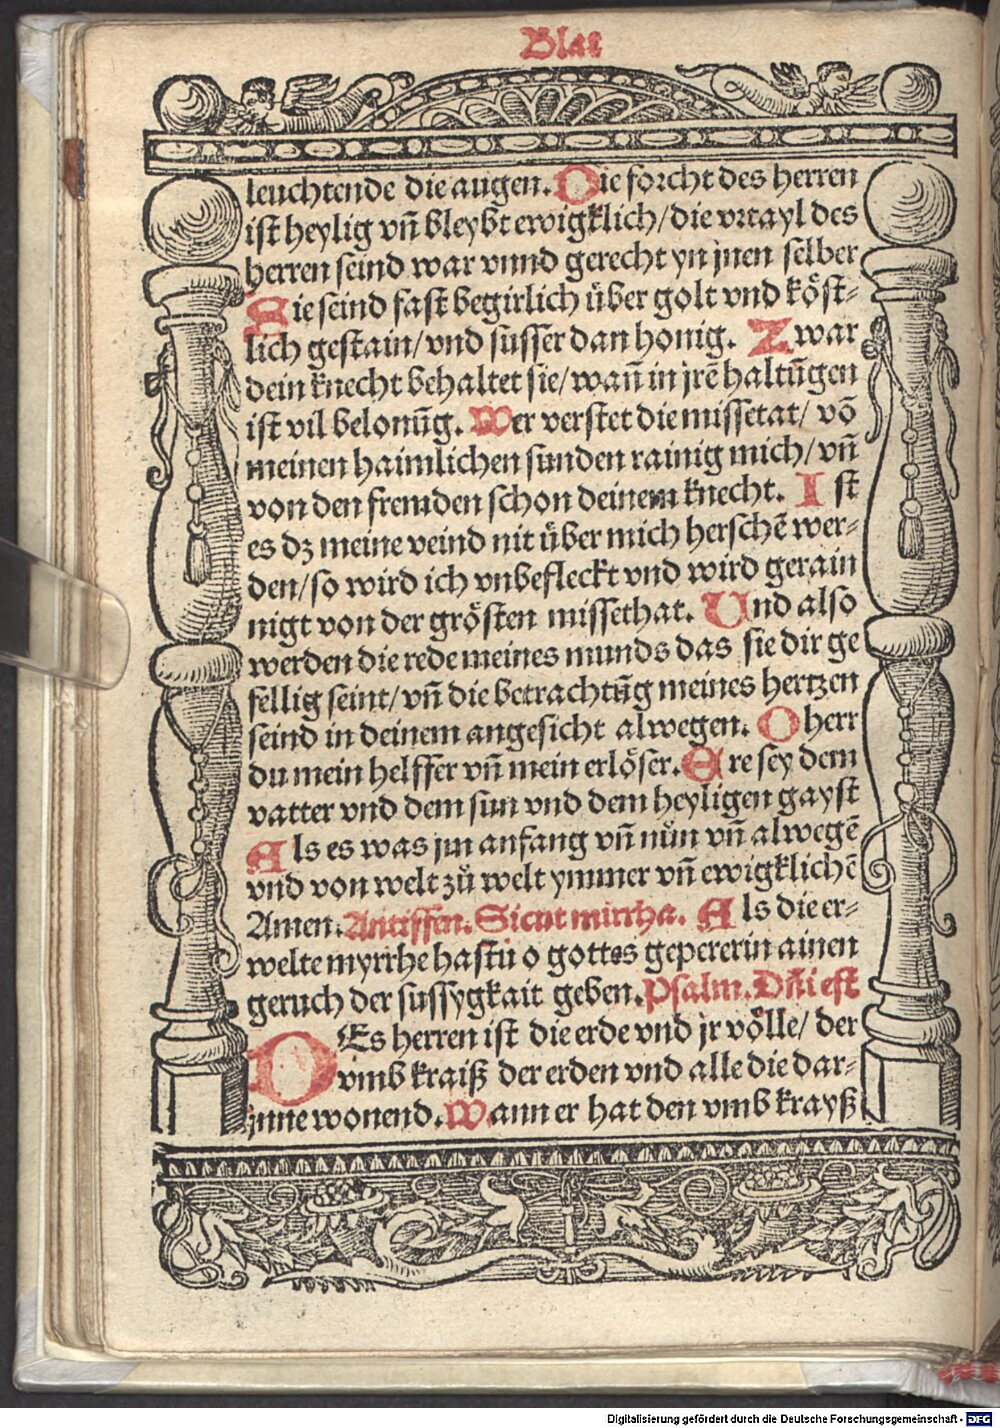 Blat
leuchtende die augen. Die forcht des herren
ist heylig vñ bleybt ewigklich/die vrtayl des
herren seind war vnnd gerecht yn jnen selber
Sie seind fast begirlich über golt vnd köst⸗
lich gestain/vnd süsser dan honig. Zwar
dein knecht behaltet sie/wañ in jrē haltũgen
ist vil belonũg. Wer verstet die missetat/ vō
meinen haimlichen sunden rainig mich/vñ
von den fremden schon deinem knecht. Ist
es dz meine veind nit über mich herschē wer⸗
den/so wird ich vnbefleckt vnd wird gerain
nigt von der grösten missethat. Und also
werden die rede meines munds das sie dir ge
fellig seint/vñ die betrachtũg meines hertzen
seind in deinem angesicht alwegen. O herr
du mein helffer vñ mein erlöser. Ere sey dem
vatter vnd dem sun vnd dem heyligen gayst
Als es was jm anfang vñ nůn vñ alwegē
vnd von welt zů welt ymmer vñ ewigklichē
Amen. Antiffen. Sicut mirrha. Als die er⸗
welte myrrhe hastu o gottes gepererin ainen
geruch der sussygkait geben. Psalm. Dñi est
DEs herren ist die erde vnd jr völle/ der
vmb kraiß der erden vnd alle die dar⸗
jnne wonend. Wann er hat den vmb krayß
Digitalisierung gefördert durch die Deutsche Forschungsgemeinschaft - DFG